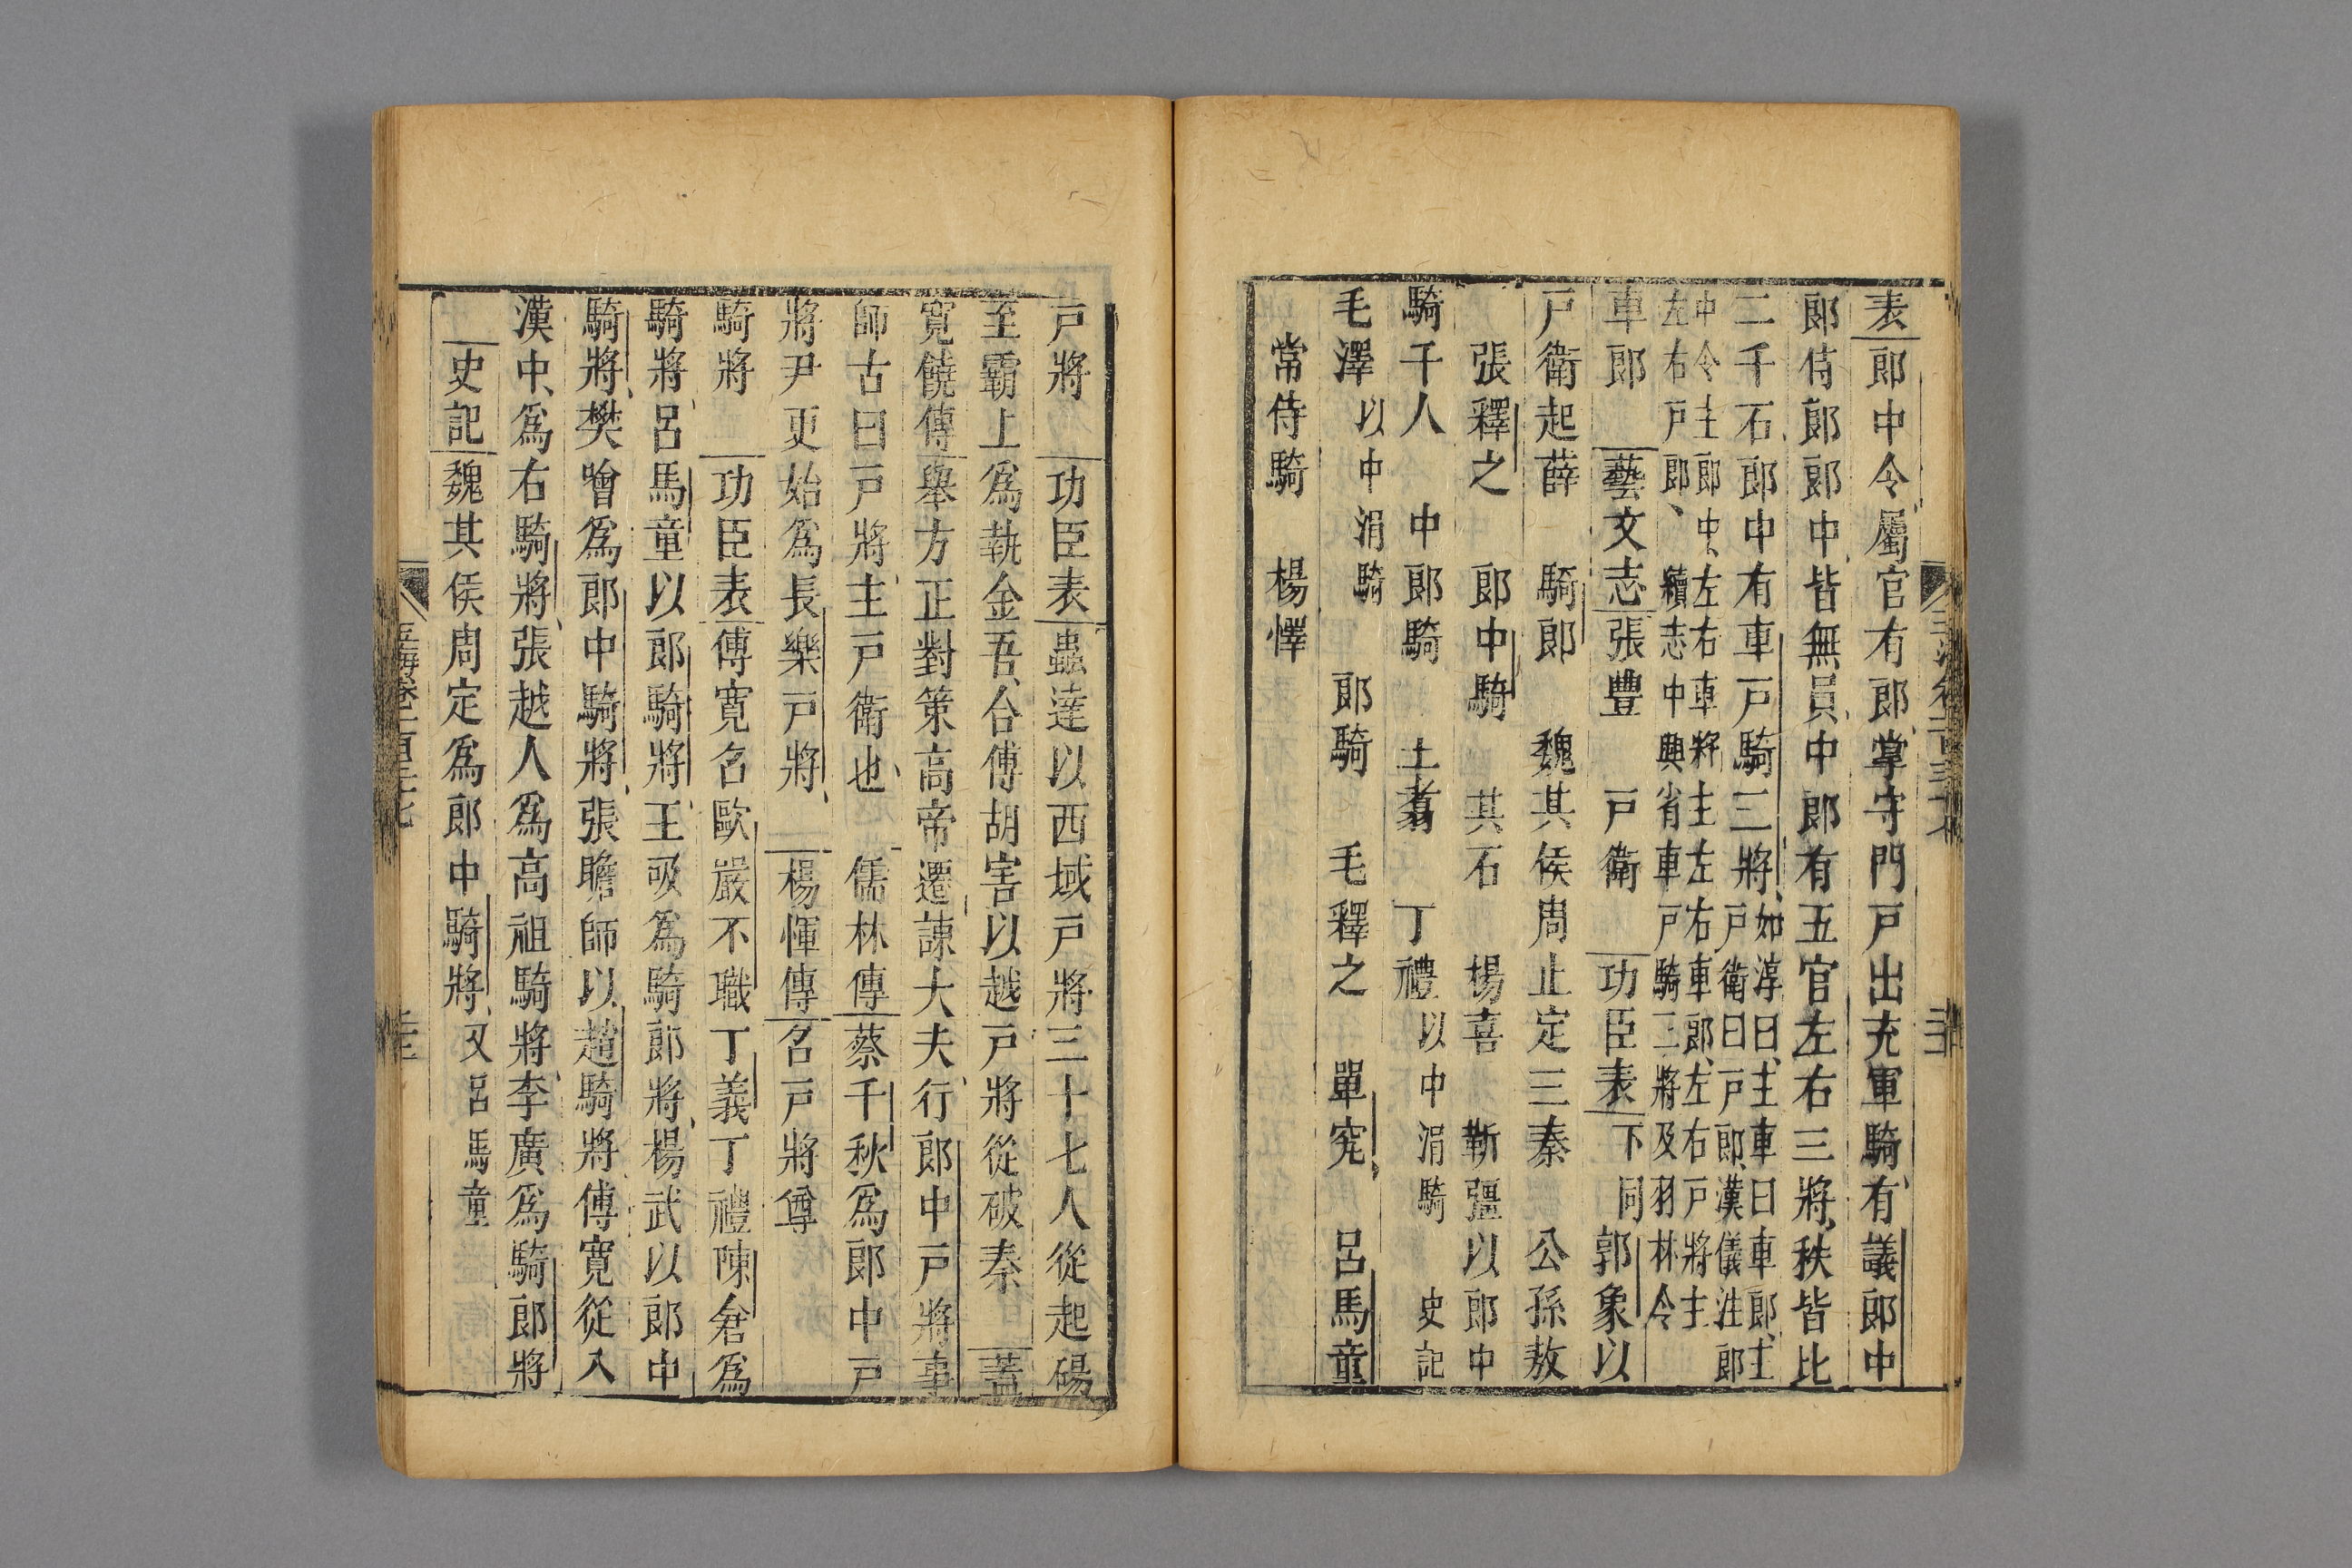 表郎中令屬官有郎掌守門戸出充軍騎有議郎中
郎侍郎郎中皆無員中郎有五官左右三將秩皆比
二千石郎中有車戸騎三將如淳曰主車曰車郎主
戸衛曰戸郎漢儀注郎
中令主郎中左右車將主左右車郎左右戸將主
左右戸郎續志中興省車戸騎三將及羽林令
車郎 藝文志張豐 戸衛 功臣表下同 郭象以
戸衛起薛 騎郎 魏其侯周止定三秦 公孫敖
張釋之 郎中騎 其石 楊喜 靳彊以郎中
騎千人 中郎騎 王翥 丁禮以中涓騎 史記
毛澤以中涓騎 郎騎 毛釋之 單究 呂馬童
常侍騎 楊懌
戸將 功臣表蟲達以西域戸將三十七人從起碭
至霸上爲執金吾合傅胡害以越戸將從破秦 蓋
寛饒傳舉方正對策高帝遷諫大夫行郎中戸將事
師古曰戸將主戸衛也 儒林傳蔡千秋爲郎中戸
將尹更始爲長樂戸將 楊惲傳名戸將尊
騎將 功臣表傅寬名歐嚴不職丁義丁禮陳倉爲
騎將呂馬童以郎騎將王吸爲騎郎將楊武以郎中
騎將樊噲爲郎中騎將張瞻師以趙騎將傅寛從入
漢中爲右騎將張越人爲高祖騎將李廣爲騎郎將
史記魏其侯周定爲郎中騎將又呂馬童